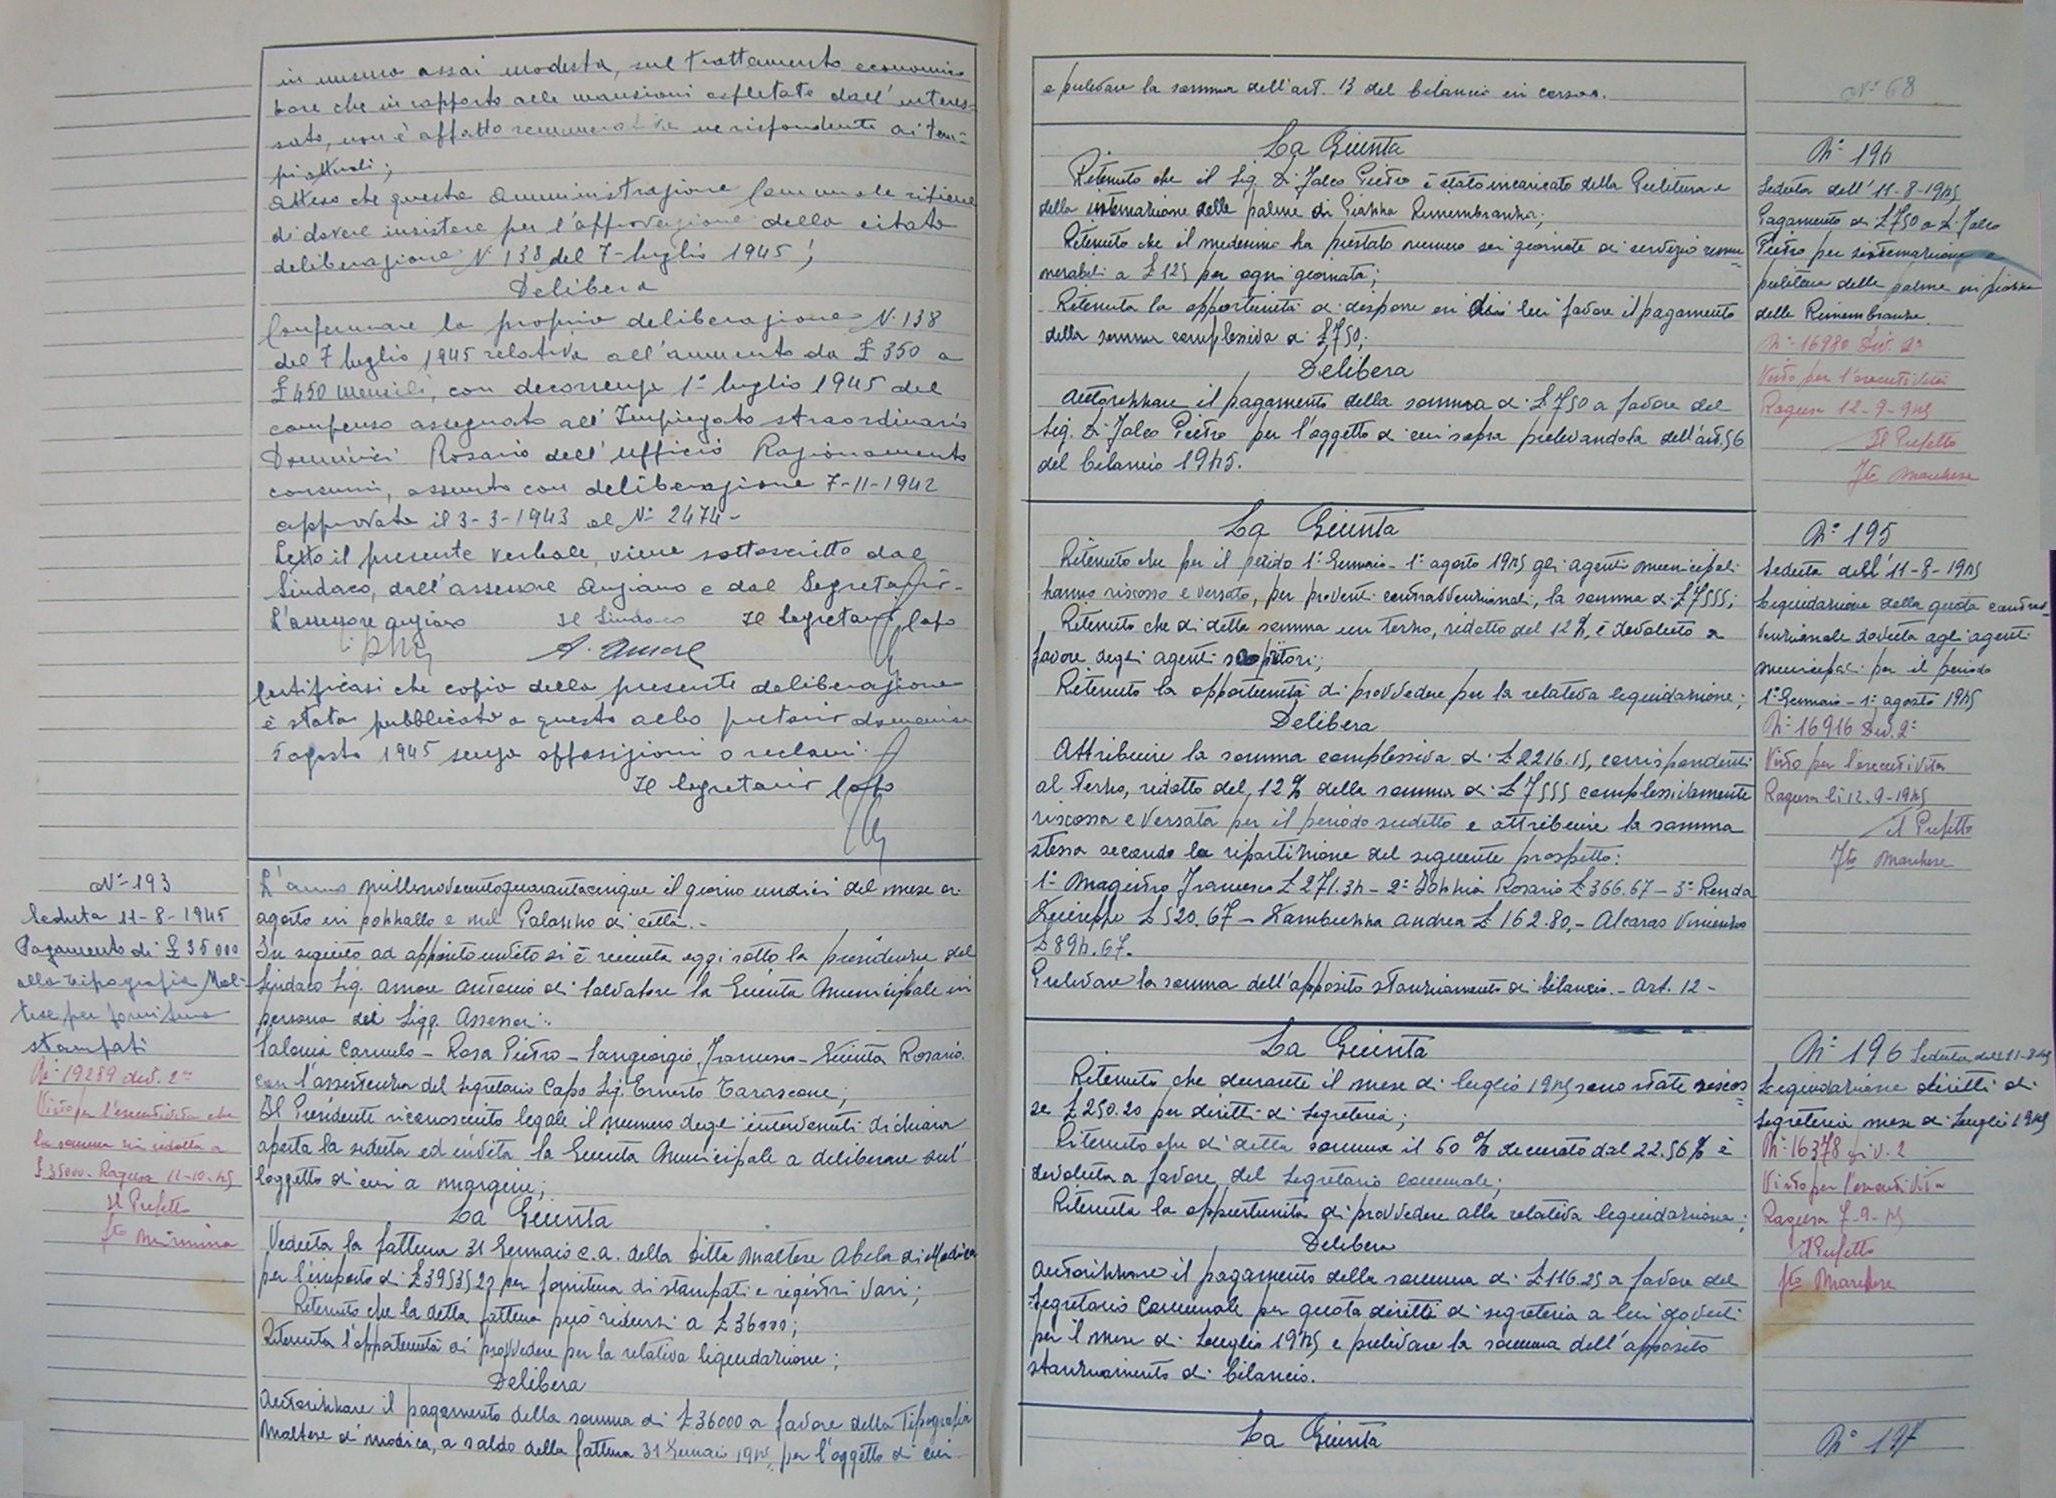 in misura assai modesta, sul trattamento economico
base che in rapporto alle mansioni espletate dall'interes-
sato, non è affatto remunerativo ne rispondente ai tem-
pi attuali;
Atteso che questa Amministrazione Comunale ritiene
di dovere insistere per l'approvazione della citata
deliberazione N. 138 del 7-luglio 1945;
Delibera
Confermare la propria deliberazione N. 138
del 7 luglio 1945 relativa all'aumento da £ 350 a
£ 450 mensili, con decorrenza 1° luglio 1945 del
compenso assegnato all'Impiegato straordinario
Dominici Rosario dell'Ufficio Razionamento
consumi, assunto con deliberazione 7-11-1942
approvata il 3-3-1943 al N° 2474-
Letto il presente verbale, viene sottoscritto dal
Sindaco, dall'assessore anziano e dal Segretario-
L'assessore anziano Il Sindaco Il Segretario Capo
A. Amore
Certificasi che copia della presente deliberazione
è stata pubblicata a questo albo pretorio domenica
5 agosto 1945 senza opposizioni o reclami.
Il Segretario Capo
N° 193
Seduta 11-8-1945
Pagamento di £ 35000
alla tipografia Mal-
tese per fornitura
stampati
N° 19289 div. 2ª
Visto per l'esecutività che
la somma sia ridotta a
£ 35000. Ragusa 11-10-45
Il Prefetto
fto
L'anno millenovecentoquarantacinque il giorno undici del mese di
agosto in Pozzallo e nel Palazzo di città.-
In seguito ad apposito invito si è riunita oggi sotto la presidenza del
Sindaco Sig. Amore Antonio di Salvatore la Giunta Municipale in
persona dei Sigg. Assessori:
Salonia Carmelo - Rosa Pietro - Sangiorgio Francesco - Giunta Rosario.
con l'assistenza del Segretario Capo Sig. Ernesto Tarascone;
Il Presidente riconosciuto legale il numero degl'intervenuti dichiara
aperta la seduta ed invita la Giunta Municipale a deliberare sul-
l'oggetto di cui a margine;
La Giunta
Veduta la fattura 31 Gennaio c.a. della Ditta Maltese Abela di Modica
per l'importo di £ 39535,27 per fornitura di stampati e registri vari;
Ritenuto che la detta fattura può ridursi a £ 36000;
Ritenuta l'opportunità di provvedere per la relativa liquidazione;
Delibera
Autorizzare il pagamento della somma di £ 36000 a favore della Tipografia
Maltese di Modica, a saldo della fattura 31 Gennaio 1945, per l'oggetto di cui
e prelevare la somma dell'art. 13 del bilancio in corso.
N° 68
La Giunta
Ritenuto che il Sig. Di Falco Pietro è stato incaricato della Pulitura e
della sistemazione delle palme di Piazza Rimembranza;
Ritenuto che il medesimo ha prestato numero sei giornate di servizio remu=
nerabili a £ 125 per ogni giornata;
Ritenuta la opportunità di disporre in di lui favore il pagamento
della somma complessiva di £ 750;
Delibera
Autorizzare il pagamento della somma di £ 750 a favore del
Sig. Di Falco Pietro per l'oggetto di cui sopra prelevandola dell'art. 56
del bilancio 1945.
N° 194
Seduta dell'11-8-1945
Pagamento di £ 750 a Di Falco
Pietro per sistemazione e
pulitura delle palme in piazza
delle Rimembranze.
N° 16980 Div. 2ª
Visto per l'esecutività
Ragusa 12-9-945
Il Prefetto
Fto Marchese
La Giunta
Ritenuto che per il periodo 1° Gennaio - 1° agosto 1945 gli agenti municipali
hanno riscosso e versato, per proventi contravvenzionali, la somma di £ 7555;
Ritenuto che di detta somma un terzo, ridotto del 12%, è devoluto a
favore degli agenti scopritori;
Ritenuto la opportunità di provvedere per la relativa liquidazione;
Delibera
Attribuire la somma complessiva di £ 2216.15, corrispondenti
al terzo, ridotto del 12% della somma di £ 7555 complessivamente
riscossa e versata per il periodo sudetto e attribuire la somma
stessa secondo la ripartizione del seguente prospetto:
1° Magistro Francesco £ 271.34 - 2° Iozzia Rosario £ 366.67 - 3° Renda
Giuseppe £ 520.67 - Zambuzza Andrea £ 162.80,- Alcaras Vincenzo
£ 894.67.
Prelevare la somma dell'apposito stanziamento di bilancio. - Art. 12 -
N° 195
Seduta dell'11-8-1945
Liquidazione della quota contrav-
venzionale dovuta agli agenti
municipali per il periodo
1° Gennaio - 1° agosto 1945
N° 16916 Div. 2ª
Visto per l'esecutività
Ragusa li 12-9-1945
Il Prefetto
Fto Marchese
La Giunta
Ritenuto che durante il mese di luglio 1945 sono state riscos=
se £ 250.20 per diritti di Segreteria;
Ritenuto che di detta somma il 60% decurtato dal 22.56% è
devoluta a favore del Segretario Comunale;
Ritenuta la opportunità di provvedere alla relativa liquidazione;
Delibera
Autorizzare il pagamento della somma di £ 116.25 a favore del
Segretario Comunale per quota diritti di segreteria a lui dovuti
per il mese di Luglio 1945 e prelevare la somma dell'apposito
stanziamento di bilancio.
N° 196 Seduta dell'11-8-45
Liquidazione diritti di
Segreteria mese di Luglio 1945
N° 16378 Div. 2
Visto per l'esecutività
Ragusa 7-9-45
Il Prefetto
fto Marchese
La Giunta
N° 197